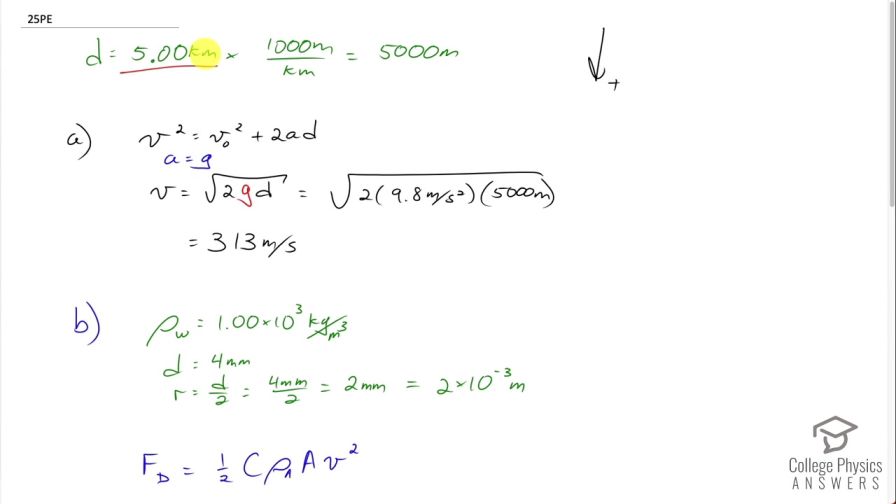 25PE
d = 5.00km × 1000m/km = 5000m
+
a) v² = v₀² + 2ad
a = g
v = √(2gd) = √(2(9.8m/s²)(5000m))
= 313m/s
b) ρw = 1.00×10³ kg/m³
d = 4mm
r = d/2 = 4mm/2 = 2mm = 2×10⁻³m
F_D = 1/2 C ρ_A A v²
College Physics
ANSWERS